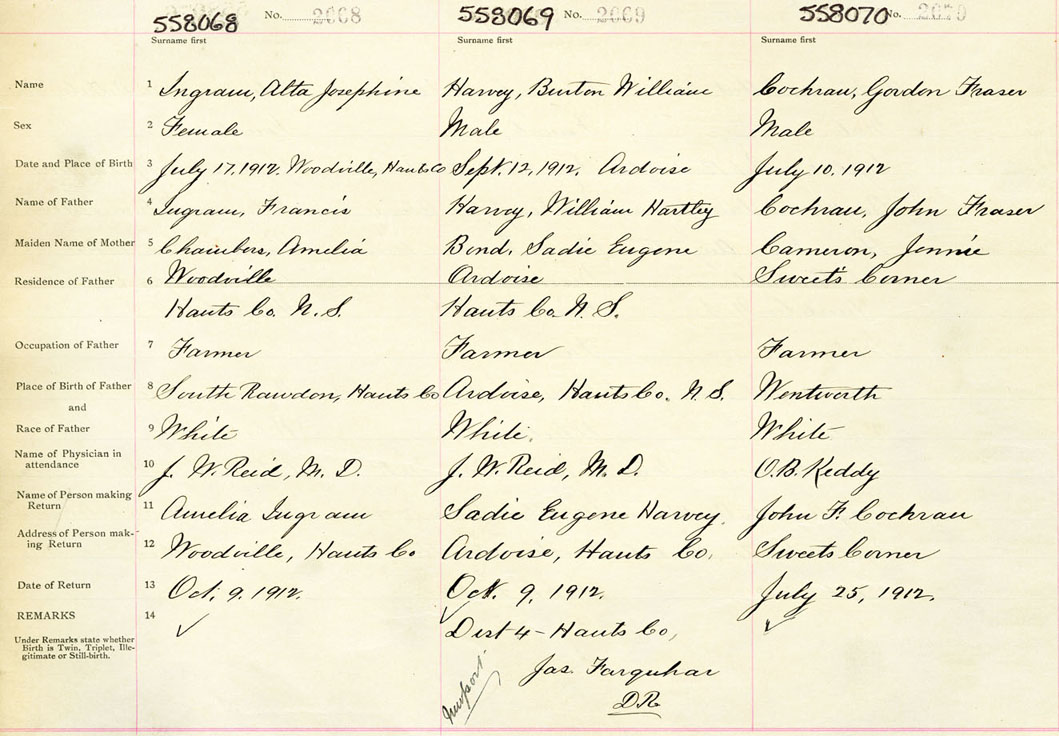 558068 No. 2068 558069 No. 2069 558070 No. 2070
Surname first Surname first Surname first
Name 1 Ingram, Alta Josephine Harvey, Burton William Cochran, Gordon Fraser
Sex 2 Female Male Male
Date and Place of Birth 3 July 17, 1912. Woodville, Hants Co Sept. 12, 1912. Ardoise July 10, 1912
Name of Father 4 Ingram, Francis Harvey, William Hartley Cochran, John Fraser
Maiden Name of Mother 5 Chambers, Amelia Bond, Sadie Eugene Cameron, Jennie
Residence of Father 6 Woodville Ardoise Sweet's Corner
Hants Co. N.S. Hants Co. N.S.
Occupation of Father 7 Farmer Farmer Farmer
Place of Birth of Father 8 South Rawdon, Hants Co Ardoise, Hants Co. N.S. Wentworth
and
Race of Father 9 White White. White
Name of Physician in
attendance 10 J. W. Reid, M. D. J. W. Reid, M. D. O.B. Keddy
Name of Person making
Return 11 Amelia Ingram Sadie Eugene Harvey. John F. Cochran
Address of Person mak-
ing Return 12 Woodville, Hants Co Ardoise, Hants Co, Sweets Corner
Date of Return 13 Oct. 9. 1912. Oct. 9, 1912. July 25, 1912.
REMARKS 14 ✓ ✓ ✓
Under Remarks state whether
Birth is Twin, Triplet, Ille-
gitimate or Still-birth.
Dist 4 - Hants Co,
Jas. Farquhar
D.R.
Newport.